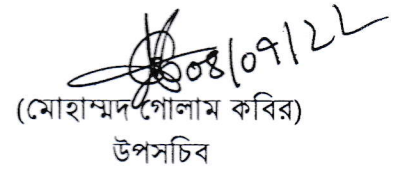 08/09/22
(মোহাম্মদ গোলাম কবির)
উপসচিব